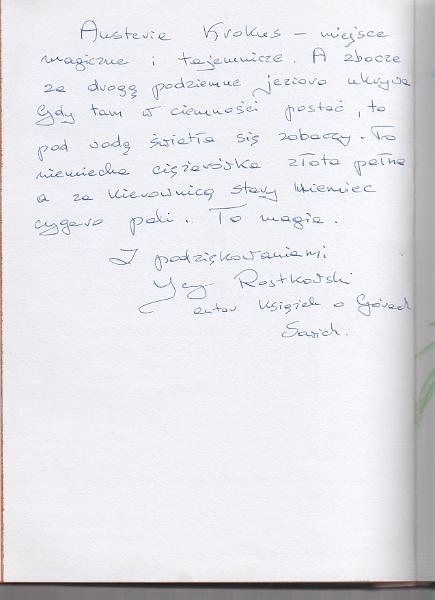 Austeria Krokus – miejsce
magiczne i tajemnicze. A zbocze
za drogą podziemne jezioro ukrywa
Gdy tam w ciemności postać, to
pod wodą światła się zobaczy. To
niemiecka ciężarówka złota pełna
a za kierownicą stary Niemiec
cygaro pali. To magia.
Z podziękowaniami
Rostkowski
autor książek o Górach
Sowich.